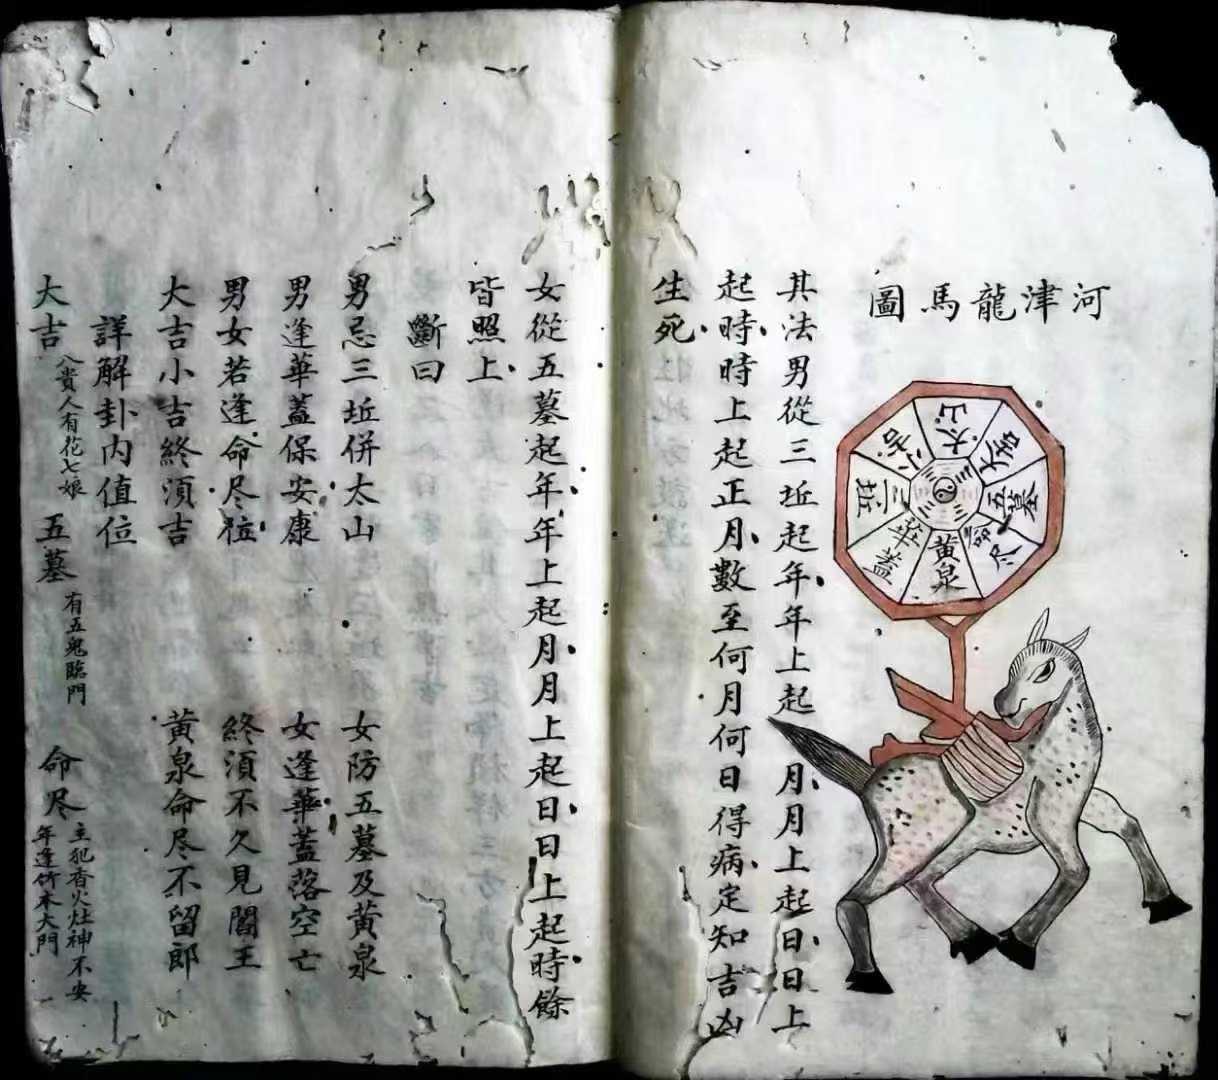 河津龍馬圖
太山
大吉
五墓
命尽
黃泉
華蓋
三坵
小吉
其法男從三坵起年年上起月月上起日日上
起時時上起正月數至何月何日得病定知吉凶
生死
女從五墓起年年上起月月上起日日上起時餘
皆照上
斷曰
男忌三坵併太山 女防五墓及黃泉
男逢華蓋保安康 女逢華蓋落空亡
男女若逢命尽位 終須不久見閻王
大吉小吉終須吉 黃泉命尽不留郎
詳解卦內值位
大吉 八貴人有花七娘 五墓 有五鬼臨門 命尽 主犯香火灶神不安
年逢 木大門